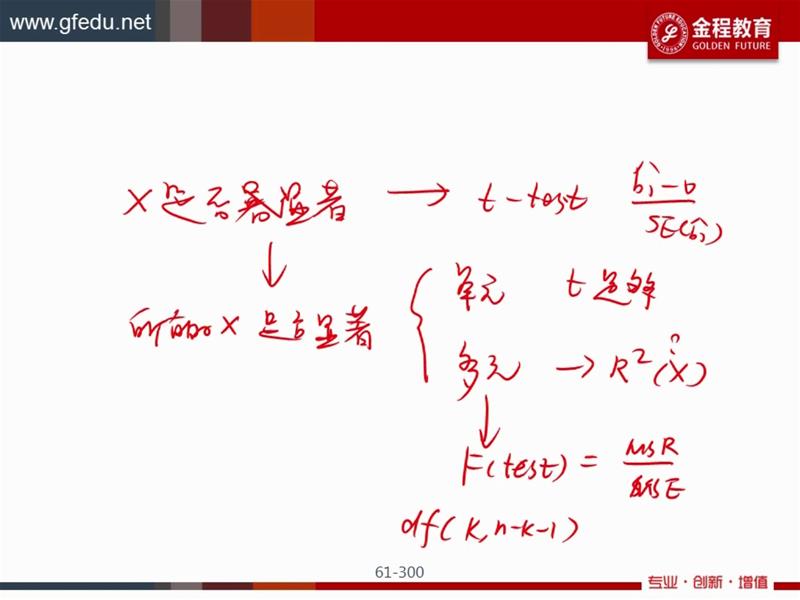 www.gfedu.net
金程教育
GOLDEN FUTURE
X是否显著 → t-test (b̂₁-0)/SE(b̂₁)
↓
所有的X是否显著 { 单元 t足够
多元 → R²(X)
↓
F(test) = MSR/MSE
df(K, n-k-1)
61-300
专业·创新·增值